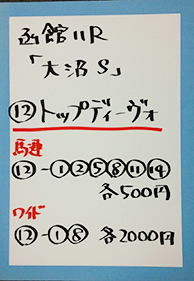 函館11R
「大沼S」
⑫トップディーヴォ
馬連
⑫-①②⑤⑧⑪⑭
各500円
ワイド
⑫-①⑧ 各2000円